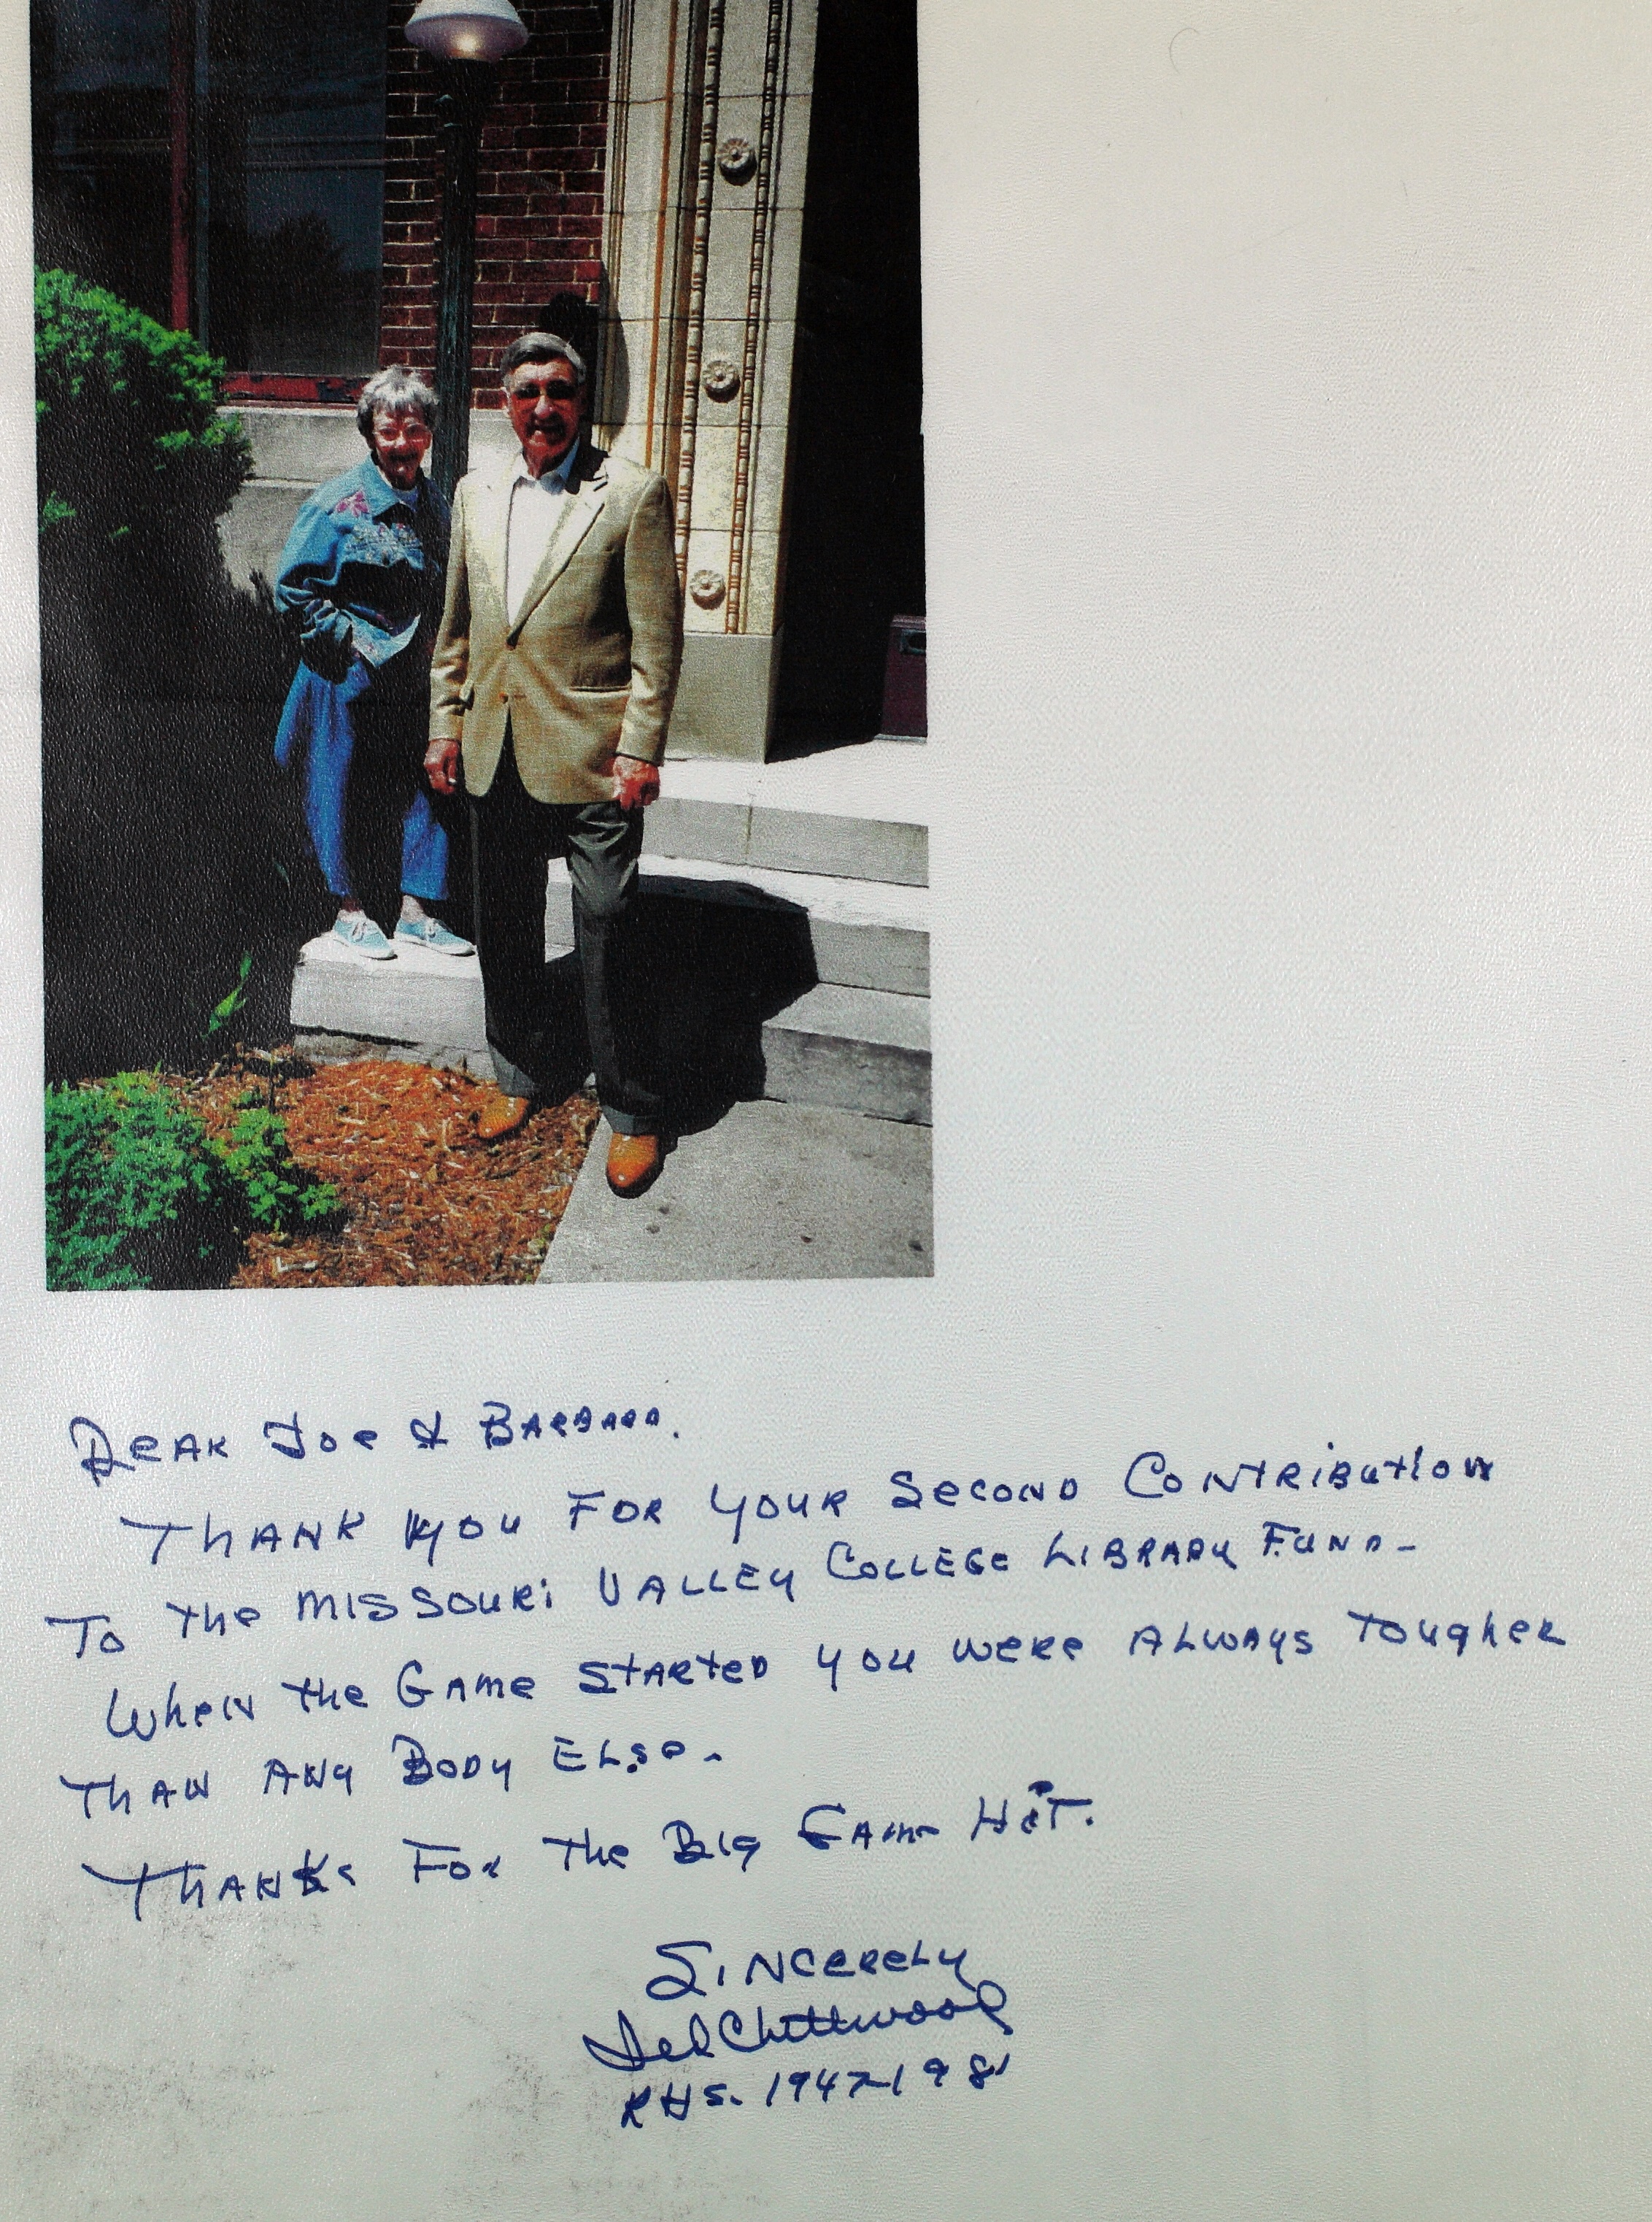 Dear Joe & Barbara.
Thank you for your second contribution
to the Missouri Valley College Library Fund-
When the Game started you were always tougher
than any body else.
Thanks for the Big Game Hit.
Sincerely
Ted Chittwood
RHS. 1947-1981